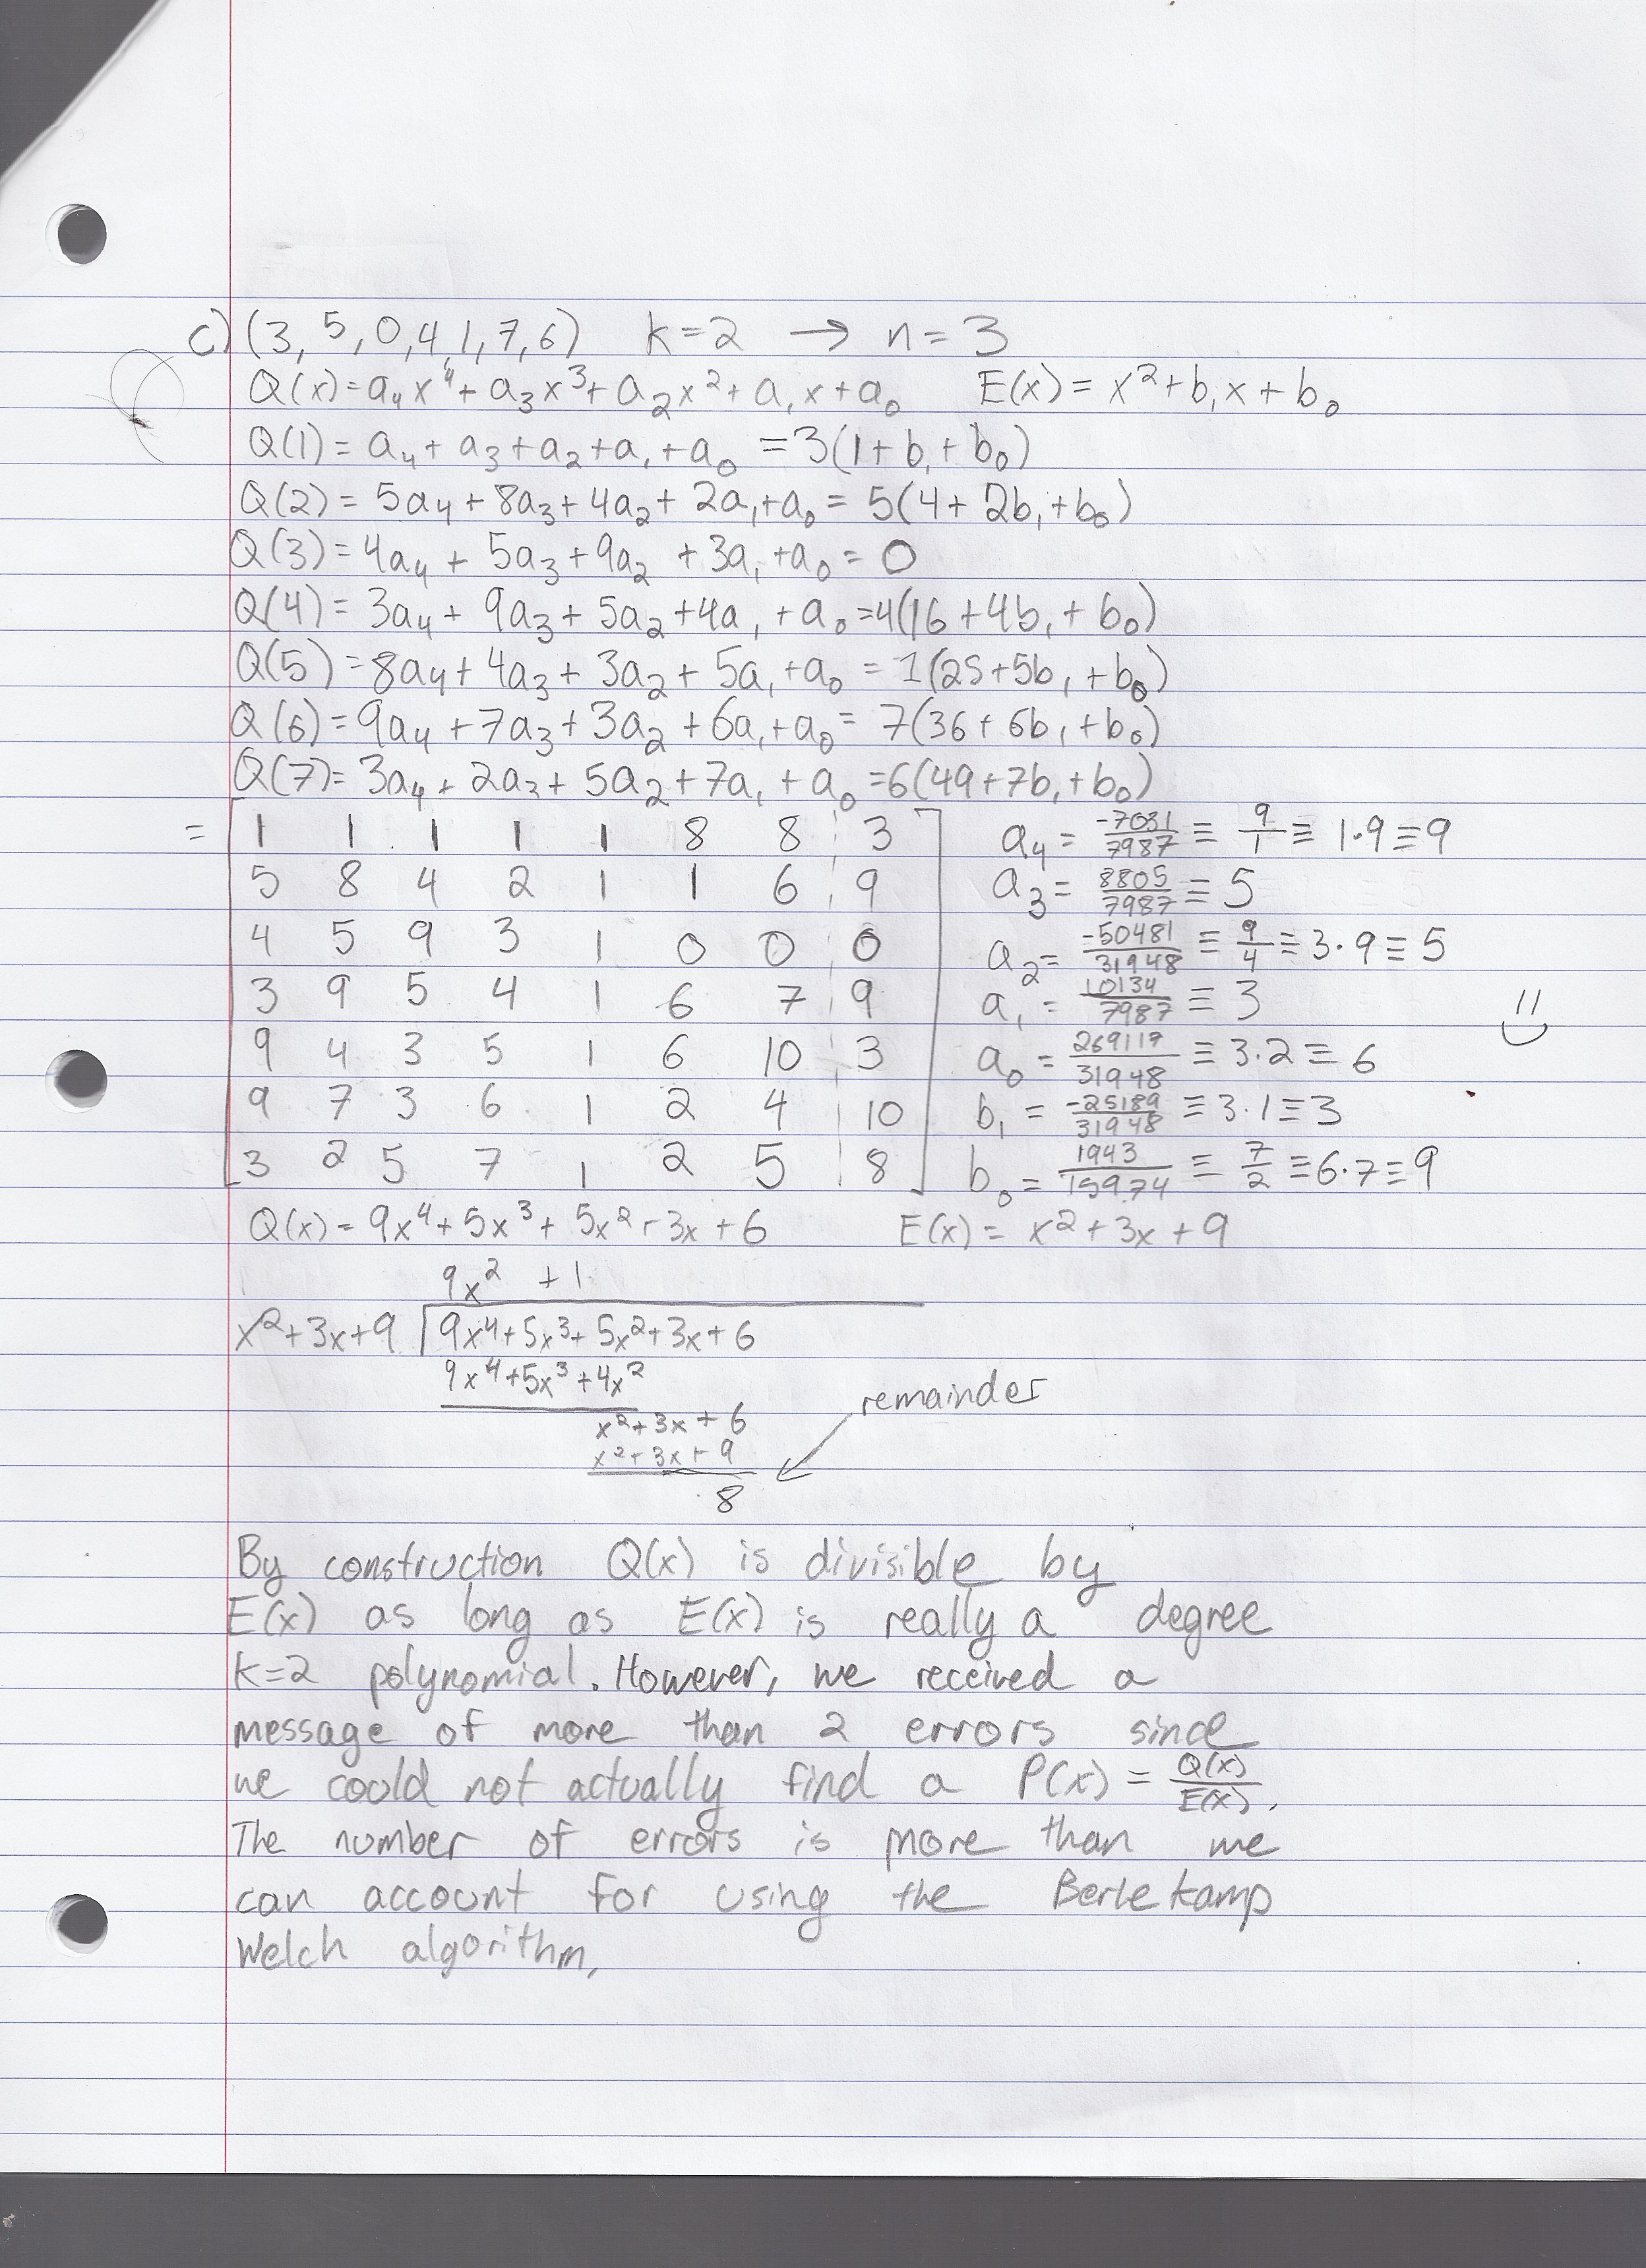 c) (3, 5, 0, 4, 1, 7, 6) k=2 → n=3
Q(x)=a₄x⁴+a₃x³+a₂x²+a₁x+a₀ E(x)=x²+b₁x+b₀
Q(1)=a₄+a₃+a₂+a₁+a₀=3(1+b₁+b₀)
Q(2)=5a₄+8a₃+4a₂+2a₁+a₀=5(4+2b₁+b₀)
Q(3)=4a₄+5a₃+9a₂+3a₁+a₀=0
Q(4)=3a₄+9a₃+5a₂+4a₁+a₀=4(16+4b₁+b₀)
Q(5)=8a₄+4a₃+3a₂+5a₁+a₀=1(25+5b₁+b₀)
Q(6)=9a₄+7a₃+3a₂+6a₁+a₀=7(36+6b₁+b₀)
Q(7)=3a₄+2a₃+5a₂+7a₁+a₀=6(49+7b₁+b₀)
= 1 1 1 1 1 8 8 3 a₄ = -7031/7987 ≡ 9/1 ≡ 1·9≡9
5 8 4 2 1 1 6 9 a₃ = 8805/7987 ≡ 5
4 5 9 3 1 0 0 0 a₂ = -50481/31948 ≡ 9/4 ≡ 3·9 ≡ 5
3 9 5 4 1 6 7 9 a₁ = 10134/7987 ≡ 3
9 4 3 5 1 6 10 3 a₀ = 269117/31948 ≡ 3·2 ≡ 6
9 7 3 6 1 2 4 10 b₁ = -25189/31948 ≡ 3·1≡3
3 2 5 7 1 2 5 8 b₀ = 1943/15974 ≡ 7/2 ≡6·7≡9
Q(x)=9x⁴+5x³+5x²+3x+6 E(x)=x²+3x+9
9x² +1
x²+3x+9 9x⁴+5x³+5x²+3x+6
9x⁴+5x³+4x²
remainder
x²+3x+6
x²+3x+9
8
By construction Q(x) is divisible by
E(x) as long as E(x) is really a degree
k=2 polynomial. However, we received a
message of more than 2 errors since
we could not actually find a P(x) = Q(x)/E(x).
The number of errors is more than we
can account for using the Berlekamp
Welch algorithm.